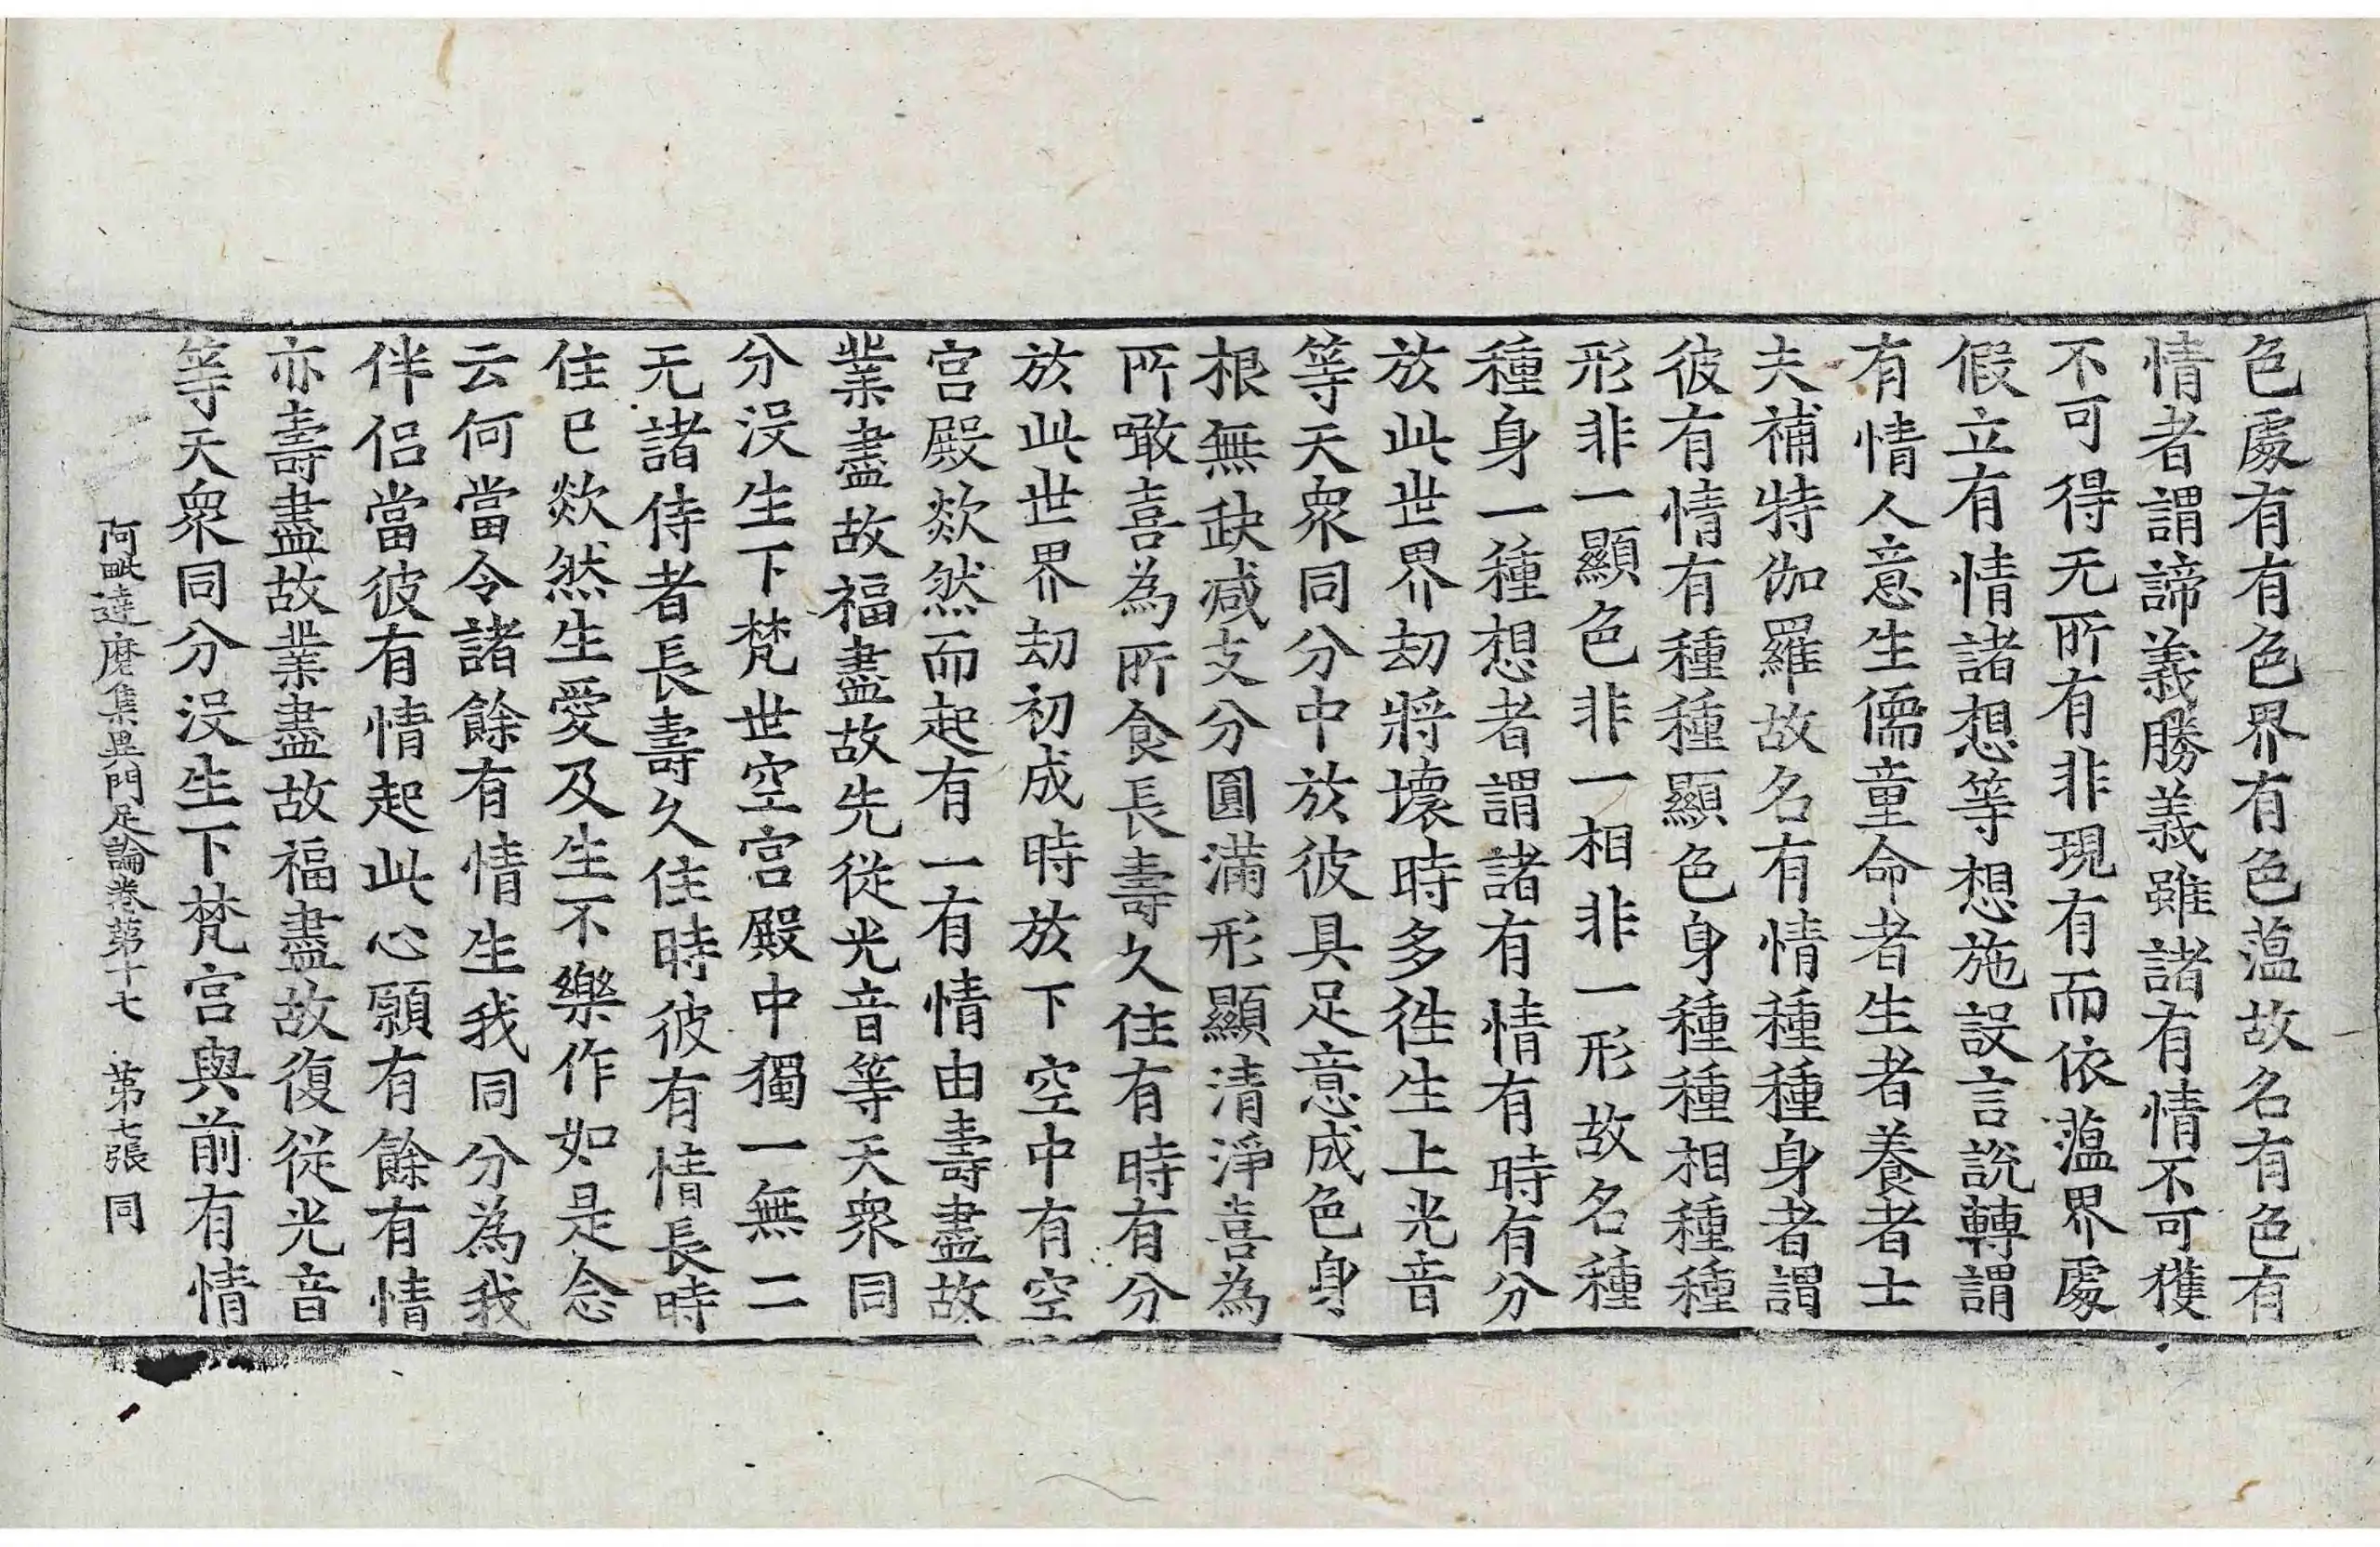 色處有有色界有色蕰故名有色有
情者謂諦義勝義雖諸有情不可獲
不可得无所有非現有而依蕰界處
假立有情諸想等想施設言說轉謂
有情人意生儒童命者生者養者士
夫補特伽羅故名有情種種身者謂
彼有情有種種顯色身種種相種種
形非一顯色非一相非一形故名種
種身一種想者謂諸有情有時有分
於此世界劫將壞時多徃生上光音
等天衆同分中於彼具足意成色身
根無缺減支分圓滿形顯清淨喜為
所噉喜為所食長壽久住有時有分
於此世界劫初成時於下空中有空
宫殿欻然而起有一有情由壽盡故
業盡故福盡故先從光音等天衆同
分沒生下梵世空宫殿中獨一無二
无諸侍者長壽久住時彼有情長時
住已欻然生愛及生不樂作如是念
云何當令諸餘有情生我同分為我
伴侣當彼有情起此心願有餘有情
亦壽盡故業盡故福盡故復從光音
等天衆同分沒生下梵宫與前有情
阿毗達磨集異門足論卷第十七　第七張　同